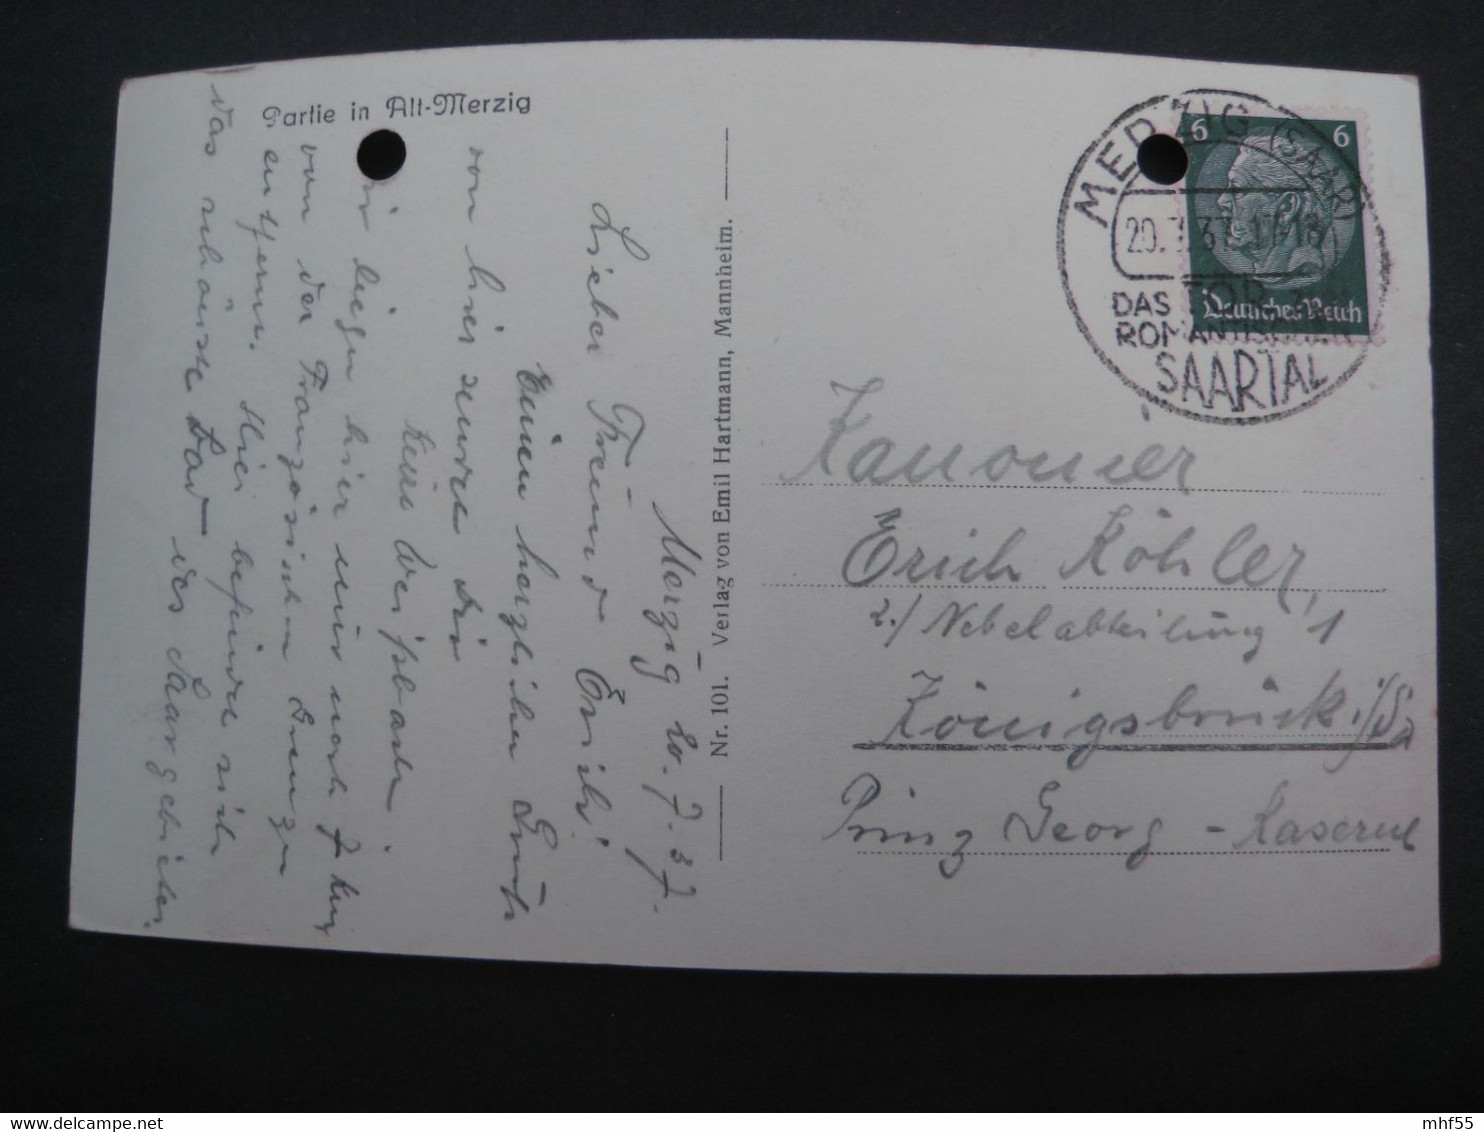 Partie in Alt-Merzig
Merzig 20.7.37.
Lieber Freund Erich!
Einen herzlichen Gruß
von hier sendet Dir
Kurt
Wir liegen hier nur noch 7 km
von der Französischen Grenze
entfernt. Hier befindet sich
das schönste Bad des Saargebietes.
Nr. 101. Verlag von Emil Hartmann, Mannheim.
MERZIG (SAAR)
20.7.37.17-18
DAS TOR ZUM
ROMANTISCHEN
SAARTAL
6 6
Deutsches Reich
Kanonier
Erich Köhler,
2./Nebelabteilung 1
Königsbrück i/Sa
Prinz Georg - Kaserne
mhf55